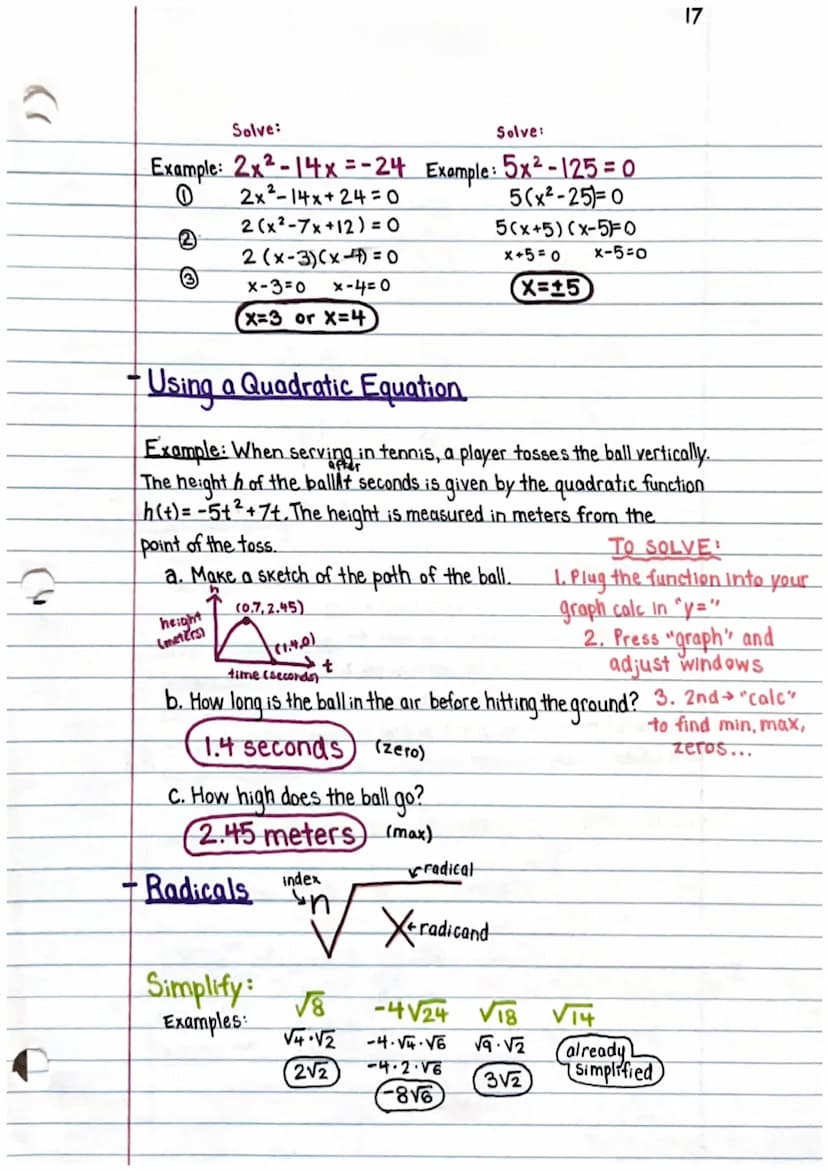 17
Solve:
Example: 2x²-14x=-24
① 2x²-14x+24=0
② 2(x²-7x+12)=0
2(x-3)(x-4)=0
③ x-3=0 x-4=0
x=3 or x=4
Solve:
Example: 5x²-125=0
5(x²-25)=0
5(x+5)(x-5)=0
x+5=0 x-5=0
x=±5
- Using a Quadratic Equation
Example: When serving in tennis, a player tosses the ball vertically.
after
The height h of the ball t seconds is given by the quadratic function
h(t)= -5t²+7t. The height is measured in meters from the
point of the toss.
a. Make a sketch of the path of the ball.
h
height
(meters)
(0.7, 2.45)
(1.4,0)
t
time (seconds)
TO SOLVE:
1. Plug the function into your
graph calc in "y="
2. Press "graph" and
adjust windows
3. 2nd→"calc"
to find min, max,
zeros...
b. How long is the ball in the air before hitting the ground?
1.4 seconds (zero)
c. How high does the ball go?
2.45 meters (max)
- Radicals
index
n
radical
X←radicand
Simplify:
Examples:
√8
√4·√2
2√2
-4√24
-4·√4·√6
-4·2·√6
-8√6
√18
√9·√2
3√2
√14
already
simplified